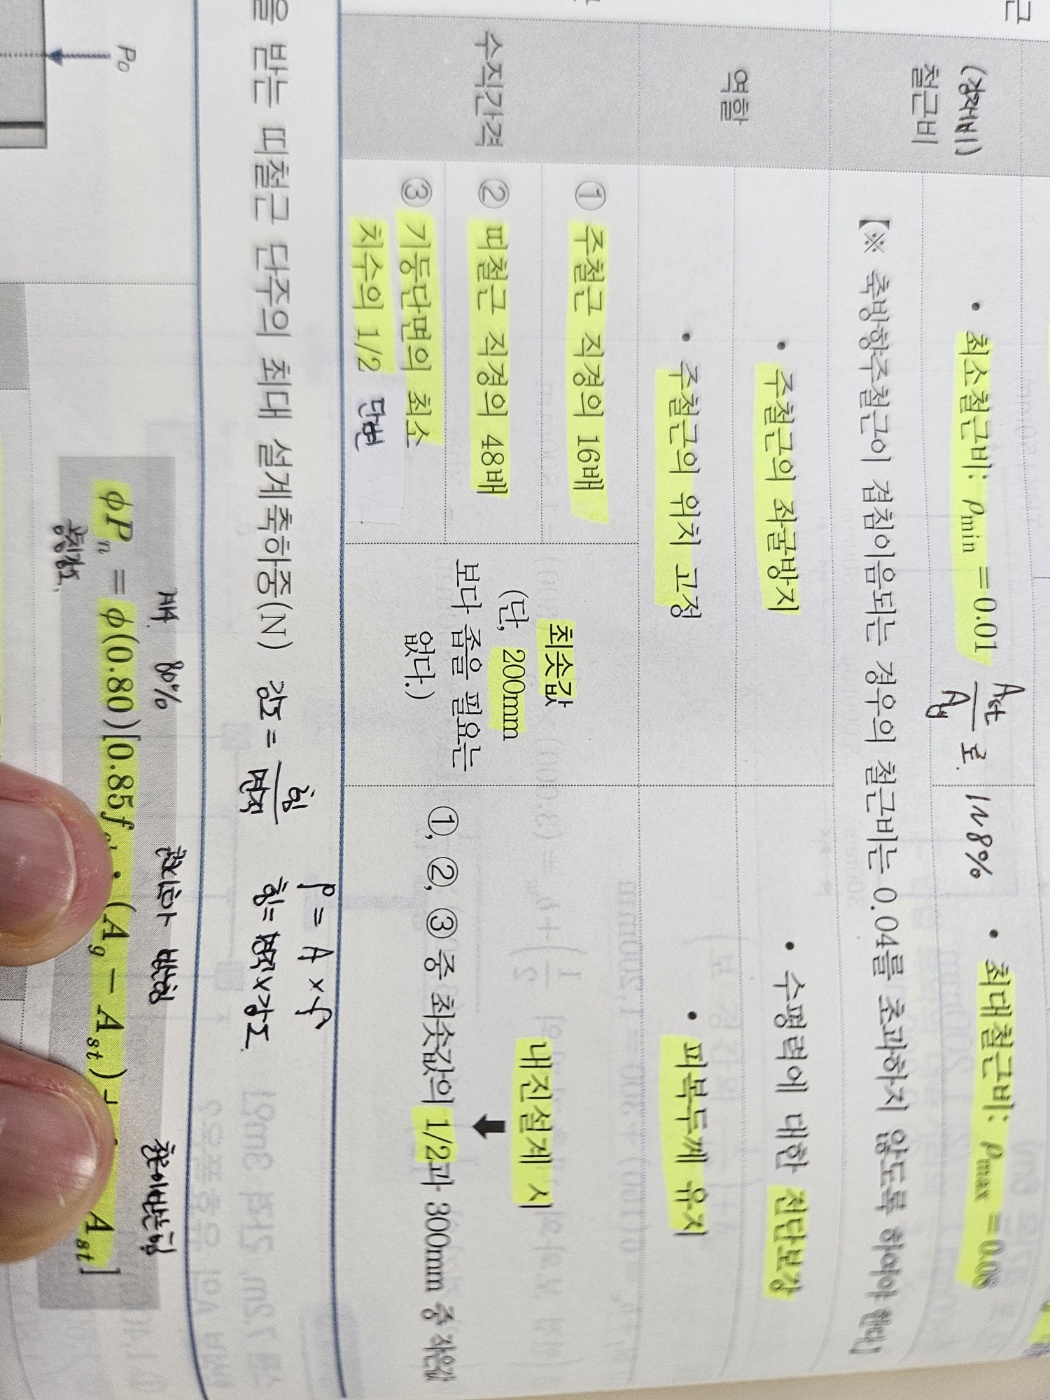 (경제비)
철근비
• 최소철근비: ρmin = 0.01
Ast/Ag 로 1~8%
• 최대철근비: ρmax = 0.08
【※ 축방향주철근이 겹침이음되는 경우의 철근비는 0.04를 초과하지 않도록 하여야 한다.】
역할
• 주철근의 좌굴방지
• 수평력에 대한 전단보강
• 주철근의 위치 고정
• 피복두께 유지
수직간격
① 주철근 직경의 16배
② 띠철근 직경의 48배
③ 기둥단면의 최소
치수의 1/2 단변
최솟값
(단, 200mm
보다 좁을 필요는
없다.)
내진설계 시
①, ②, ③ 중 최솟값의 1/2과 300mm 중 작은값
P = A × f
을 받는 띠철근 단주의 최대 설계축하중(N)
강도 = 힘/면적
힘 = 면적×강도
P₀
80%
콘크리트가 받는힘
철근이받는힘
ϕPn = ϕ(0.80)[0.85f · (Ag − Ast) + Ast]